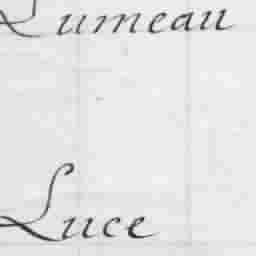 Lumeau
Luce